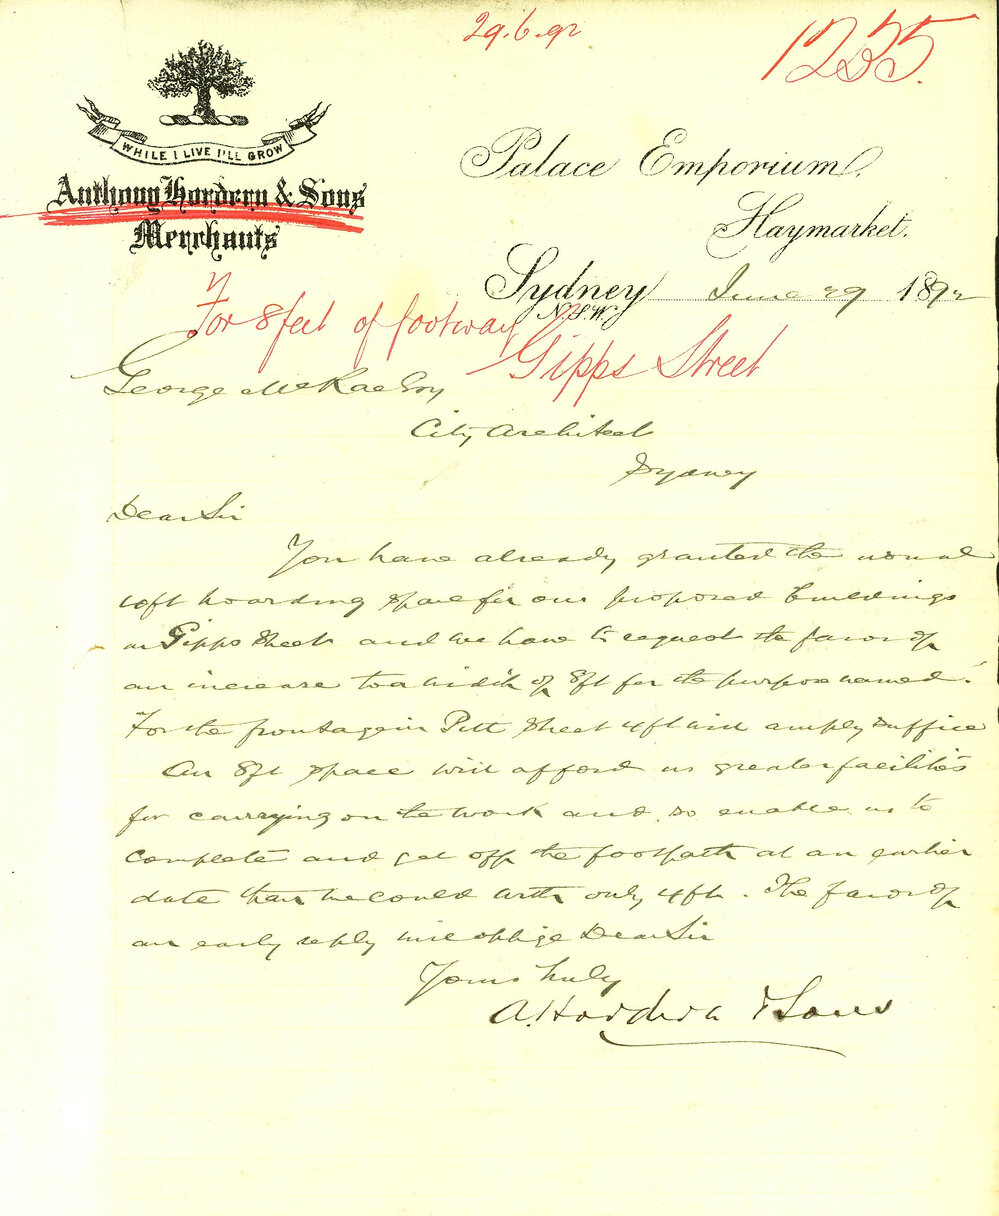 29.6.92
1235.
WHILE I LIVE I'LL GROW
Anthony Hordern & Sons
Merchants
Palace Emporium,
Haymarket.
Sydney June 29 1892
N.S.W.
For 8 feet of footway
Gipps Street
George McRae Esq
City Architect
Sydney
Dear Sir
You have already granted the usual
hoarding space for our proposed Buildings
in Gipps Street and we have to request the favor of
an increase to a width of 8ft for the purpose named.
For the frontage in Pitt Street 4ft will amply suffice
An 8ft space will afford us greater facilities
for carrying on the work and so enable us to
complete and get off the footpath at an earlier
date than we could with only 4ft. The favor of
an early reply will oblige Dear Sir
Yours truly
A. Hordern & Sons